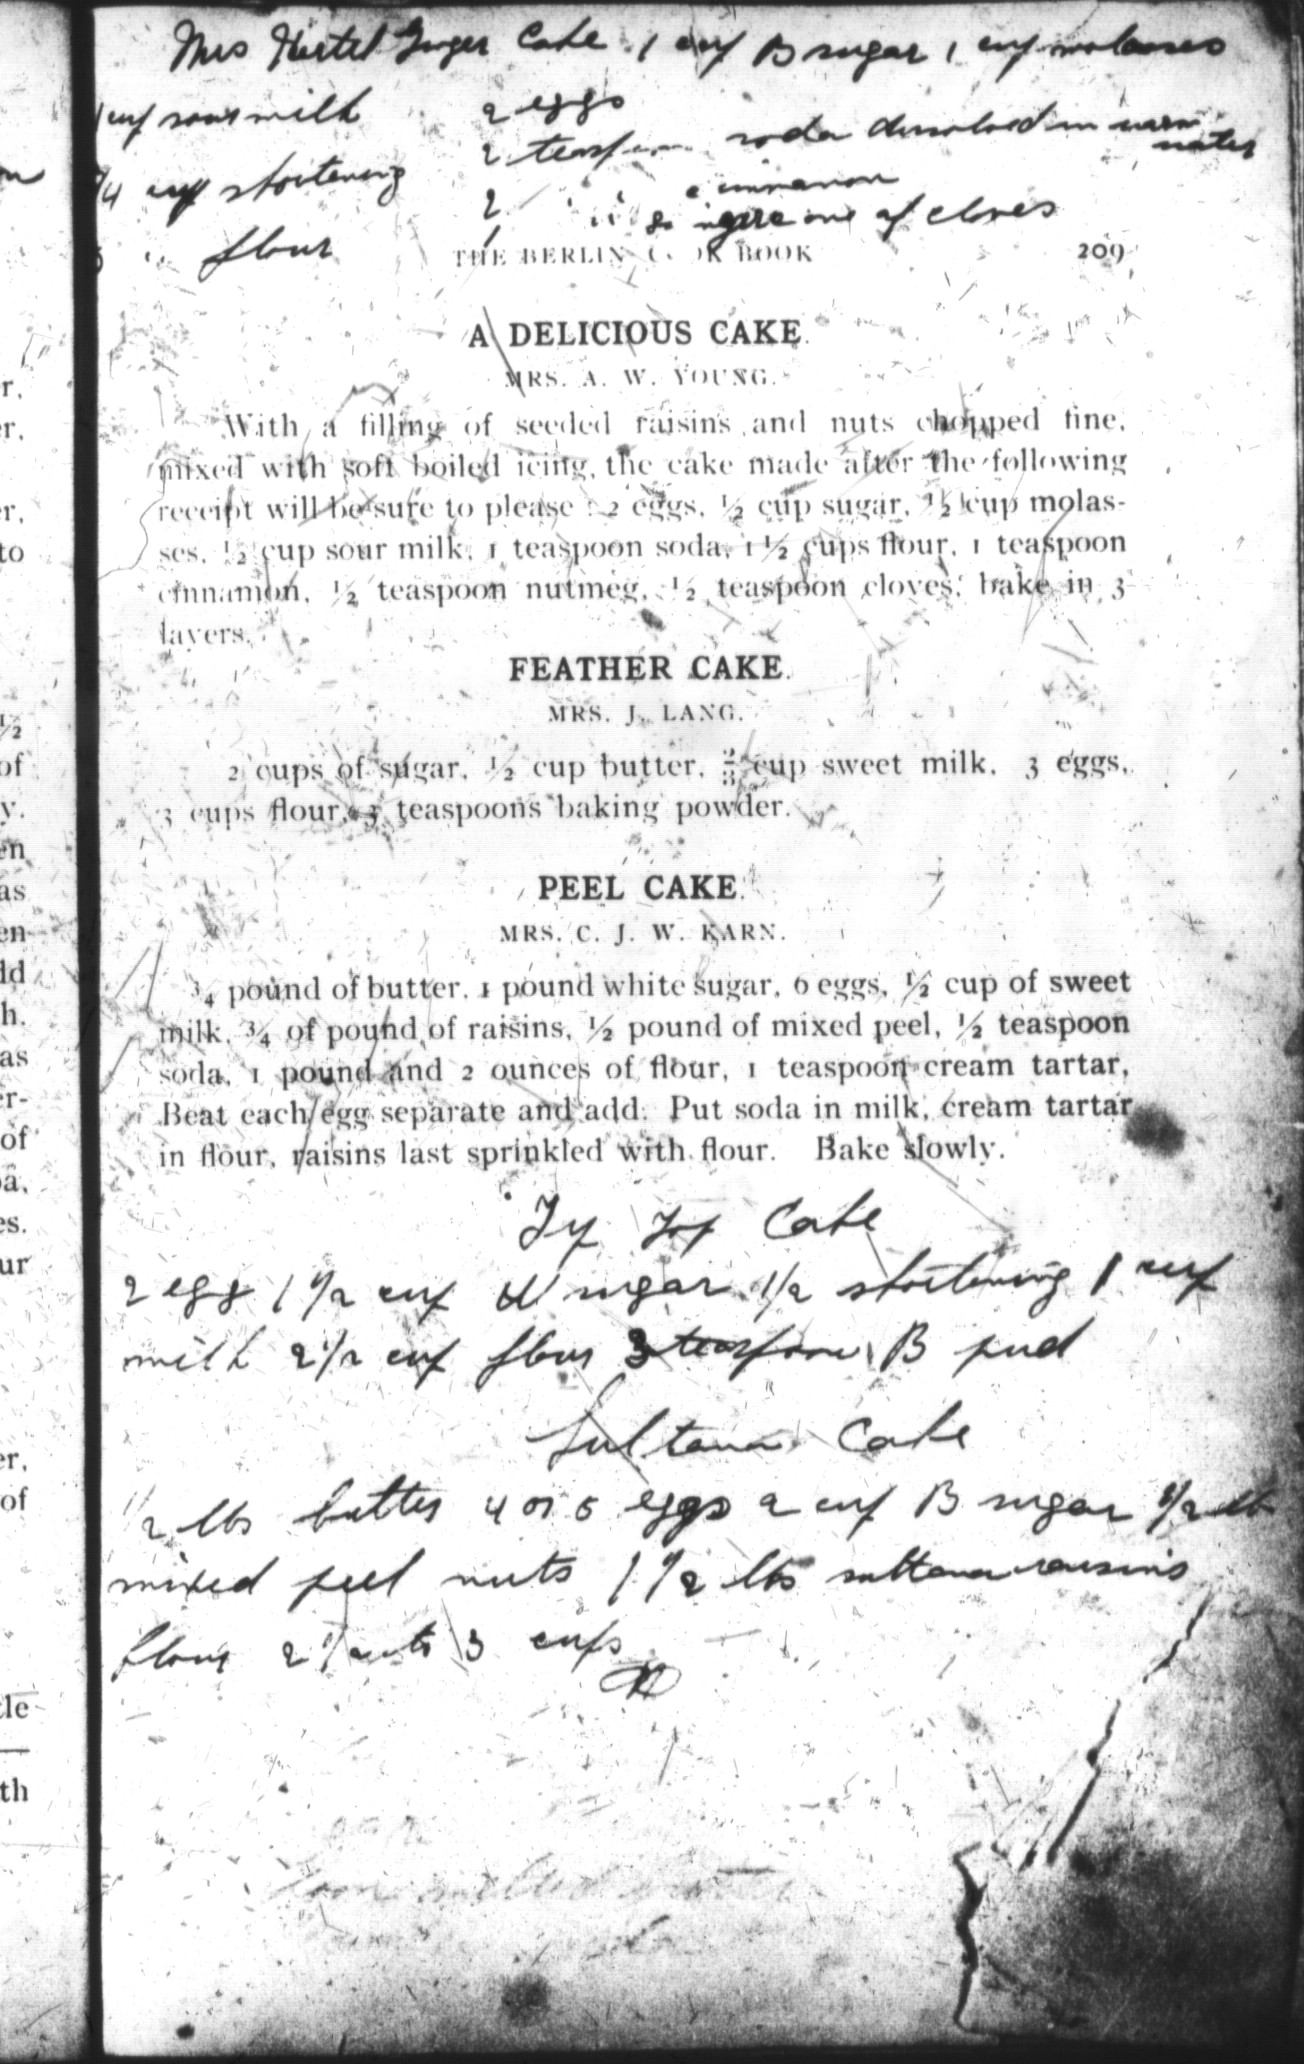 Mrs Hertel Ginger Cake 1 cup B sugar 1 cup molasses
1 cup sour milk 2 eggs
2 teaspoon soda dissolved in warm
water
3/4 cup shortening 2 " " cinnamon
1 " " ginger one of cloves
3 " flour
THE BERLIN COOK BOOK 209
A DELICIOUS CAKE.
MRS. A. W. YOUNG.
With a filling of seeded raisins and nuts chopped fine,
mixed with soft boiled icing, the cake made after the following
receipt will be sure to please : 2 eggs, ½ cup sugar, ½ cup molas-
ses, ½ cup sour milk, 1 teaspoon soda, 1½ cups flour, 1 teaspoon
cinnamon, ½ teaspoon nutmeg, ½ teaspoon cloves; bake in 3
layers.
FEATHER CAKE.
MRS. J. LANG.
2 cups of sugar, ½ cup butter, ⅔ cup sweet milk, 3 eggs,
3 cups flour, 3 teaspoons baking powder.
PEEL CAKE.
MRS. C. J. W. KARN.
¾ pound of butter, 1 pound white sugar, 6 eggs, ½ cup of sweet
milk, ¾ of pound of raisins, ½ pound of mixed peel, ½ teaspoon
soda, 1 pound and 2 ounces of flour, 1 teaspoon cream tartar,
Beat each egg separate and add. Put soda in milk, cream tartar
in flour, raisins last sprinkled with flour. Bake slowly.
Tip Top Cake
2 egg 1 1/2 cup W sugar 1/2 shortening 1 cup
milk 2 1/2 cup flour 3 teaspoon B pud
Sultana Cake
1/2 lbs butter 4 or 5 eggs 2 cup B sugar 1/2 lb
mixed peel nuts 1 1/2 lbs sultana raisins
flour 2 1/2 to 3 cups